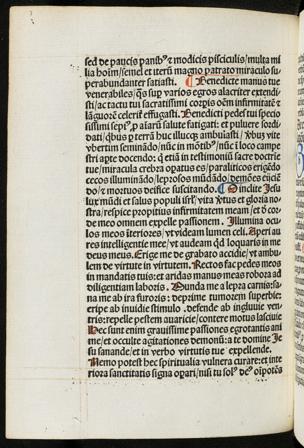 sed de paucis panibꝰ ⁊ modicis pisciculis/multa mi
lia hoīm/semel et iterū magno patrato miraculo su-
perabundanter satiasti. ¶ Benedicte manus tue
venerabiles/qs̄ sup varios egros alacriter extendi-
sti/ac tactu tui sacratissimi corpis oēm infirmitatē ⁊
lāguorē celerit̄ effugasti. Benedicti pedes tui specio
sissimi sepiꝰ, p aīarū salute fatigati: et puluere sordi-
dati/qbus p terrā huc illucqꝫ ambulasti/ xbuz vite
vbertim seminādo/nūc in mōtibꝰ/nūc ī loco campe
stri apte docendo: q etiā in testimoniū sacre doctrie
tue/miracula crebra opatus es/paraliticos erigēdo
cecos illuminādo/leprosos mūdādo/demōes eiiciē
do/⁊ mortuos deifice suscitando. ¶ O inclite Jesu
lux mūdi et salus populi isrl̄/vita xtus et gloria no
stra/respice propitius infirmitatem meam/et ō cor-
de meo omnem expelle passionem. Illumina ocu-
los meos īteriores: vt videam lumen celi. Aperi au
res intelligentie mee/vt audeam qd loquaris in me
deus meus. Erige me de grabato accidie/vt ambu
lem de virtute in virtutem. Rectos fac pedes meos
in mandatis tuis: et aridas manus meas robora ad
diligentiam laboris. Munda me a lepra carnis: sa-
na me ab ira furoris: deprime tumorem superbie:
eripe ab inuidie stimulo. defende ab ingluuie ven-
tris: repelle pestem auaricie/contere motus lasciuie
Hec sunt enim grauissime passiones egrotantis ani
me/et occulte agitationes demonū: a te domine Je
su sanande/et in verbo virtutis tue expellende.
Nemo potest hec spiritualia vulnera curare: et inte
riora sanctitatis signa opari/nisi tu solꝰ deꝰ oīpotēs